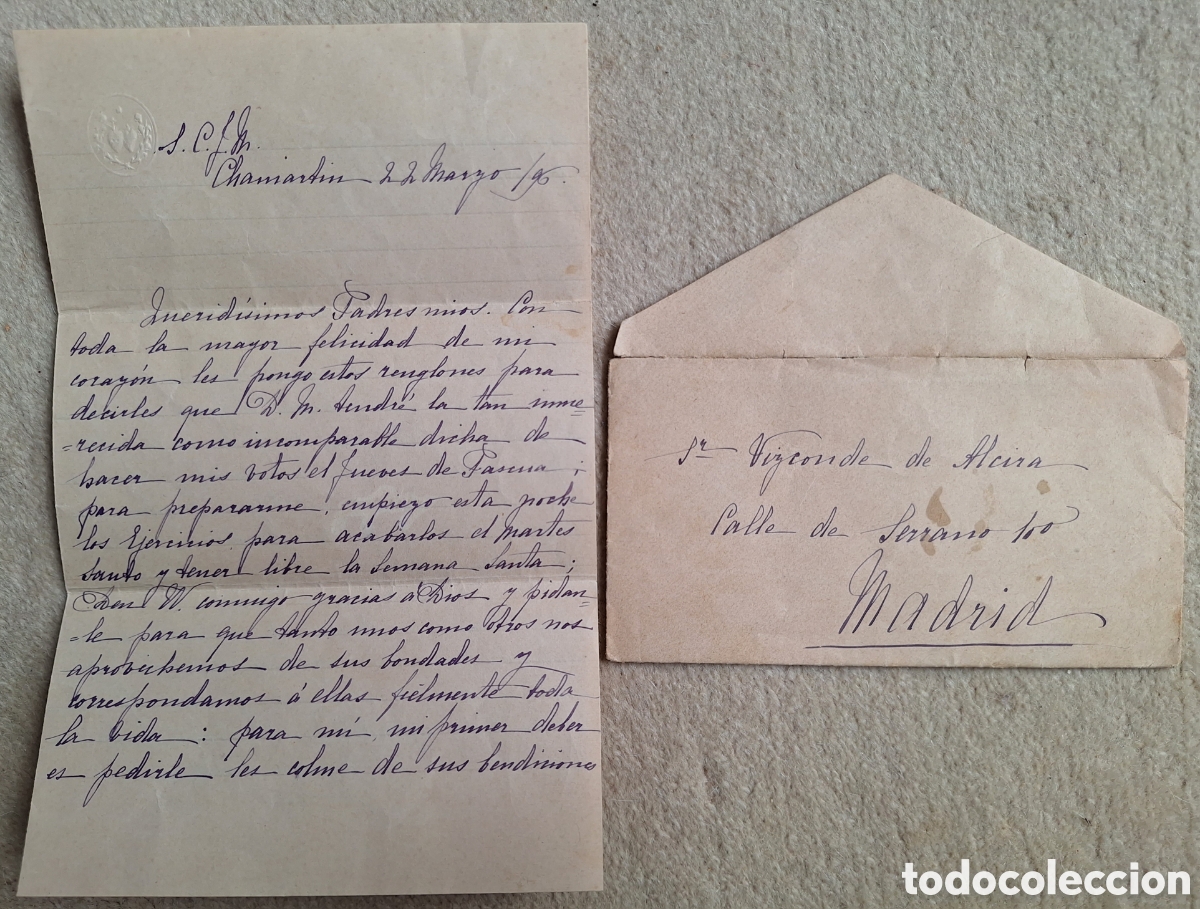 S. C. J. M.
Chamartin 22 Marzo /96.
Queridísimos Padres mios. Con
toda la mayor felicidad de mi
corazón les pongo estos renglones para
decirles que D. M. tendré la tan inme=
=recida como incomparable dicha de
hacer mis votos el Jueves de Pascua;
para prepararme, empiezo esta noche
los Ejercicios para acabarlos el Martes
Santo y tener libre la Semana Santa;
Den V. conmigo gracias á Dios y pidan=
=le para que tanto unos como otros nos
aprovechemos de sus bondades y
correspondamos á ellas fielmente toda
la vida: para mí, mi primer deber
es pedirle les colme de sus bendiciones
Sr Vizconde de Alcira
Calle de Serrano 100
Madrid
todocoleccion